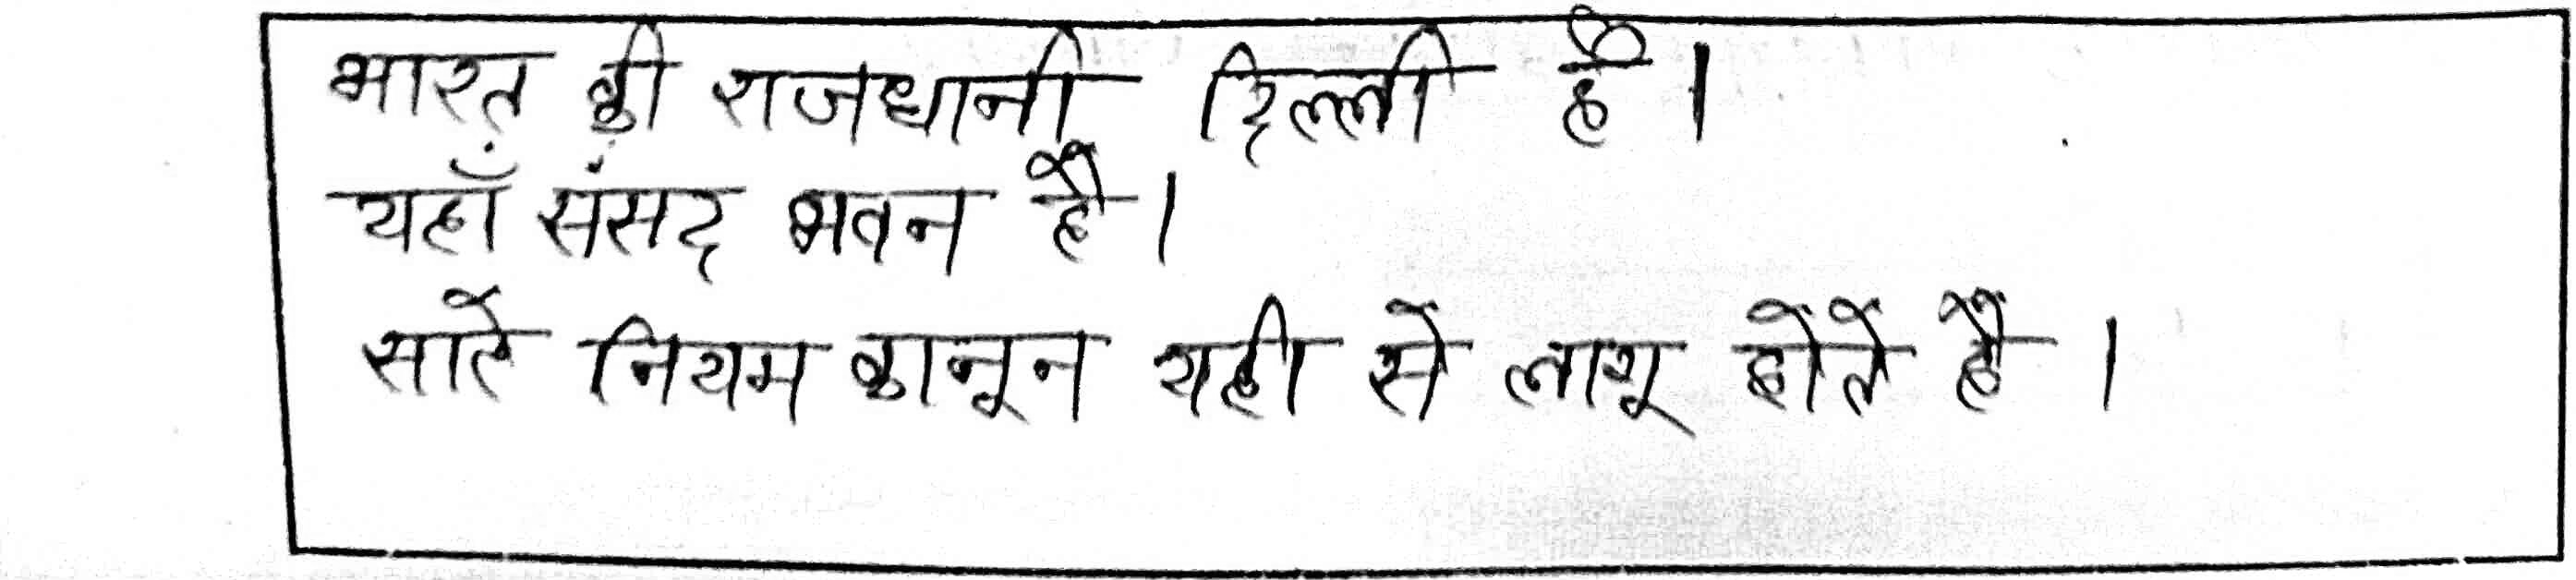 भारत की राजधानी दिल्ली है।
यहाँ संसद भवन है।
सारे नियम कानून यही से लागू होते है ।